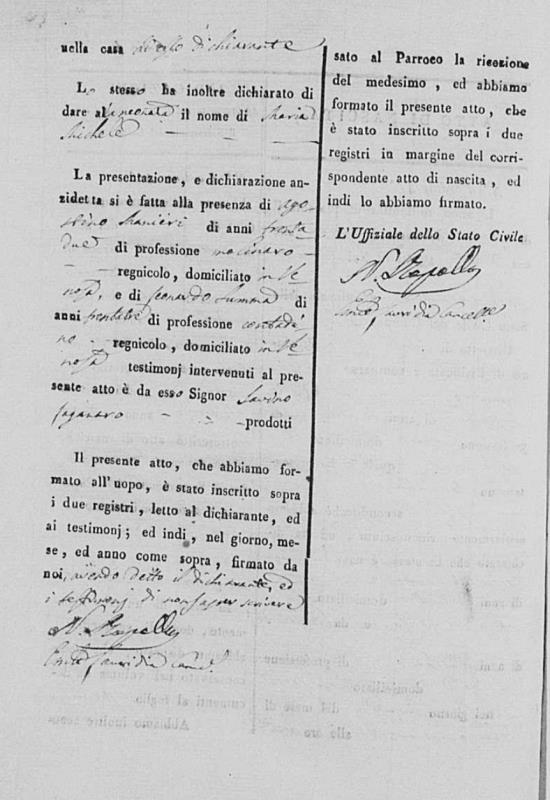 nella casa di esso dichiarante
Lo stesso ha inoltre dichiarato di
dare alla neonata il nome di Maria
Michele
La presentazione, e dichiarazione an-
zidetta si è fatta alla presenza di Ago-
stino Ranieri di anni trenta
due di professione
regnicolo, domiciliato in Ve-
nosa, e di Leonardo Summa di
anni trentatre di professione contadi-
no regnicolo, domiciliato in Ve-
nosa testimonj intervenuti al pre-
sente atto è da esso Signor Savino
prodotti
Il presente atto, che abbiamo for-
mato all'uopo, è stato inscritto sopra
i due registri, letto al dichiarante, ed
ai testimonj; ed indi, nel giorno, me-
se, ed anno come sopra, firmato da
noi, avendo detto il dichiarante, ed
i testimonj di non saper scrivere
sato al Parroco la ricezione
del medesimo, ed abbiamo
formato il presente atto, che
è stato inscritto sopra i due
registri in margine del corri-
spondente atto di nascita, ed
indi lo abbiamo firmato.
L'Uffiziale dello Stato Civile